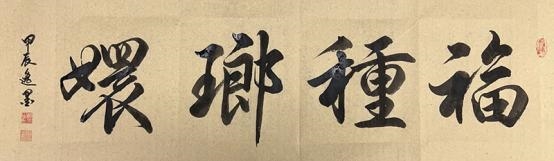 福種瑯嬛
甲辰逸墨